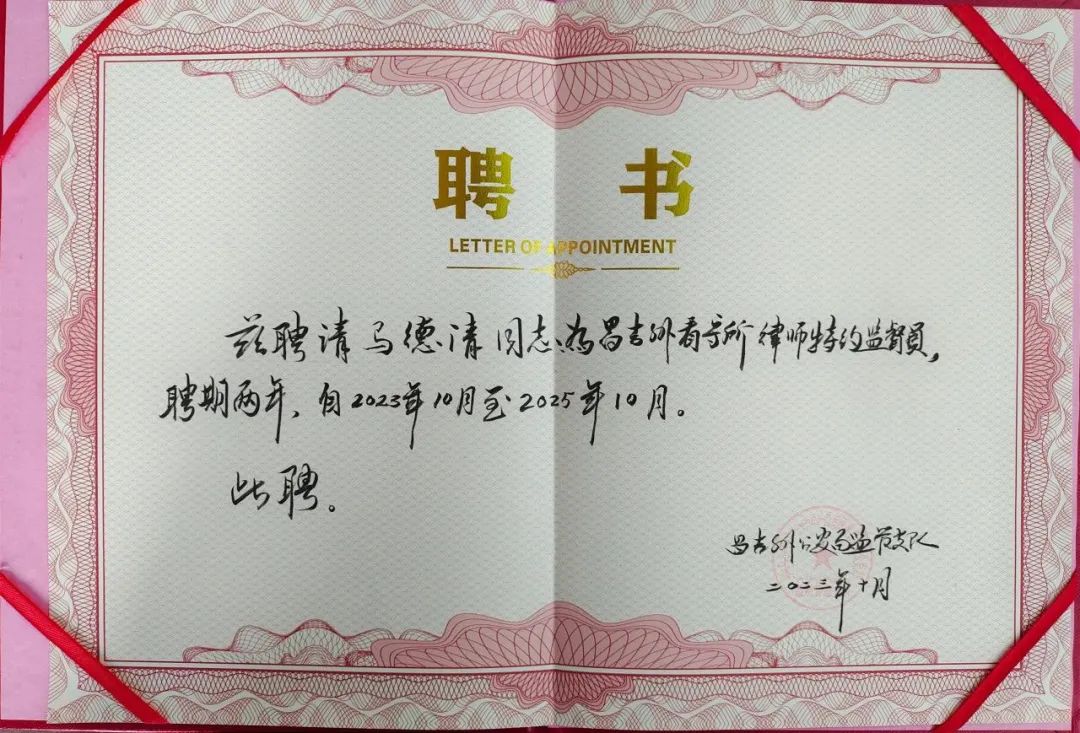 聘书
LETTER OF APPOINTMENT
兹聘请马德清同志为昌吉州看守所律师特约监督员，
聘期两年，自2023年10月至2025年10月。
此聘。
昌吉州公安局监管支队
二〇二三年十月